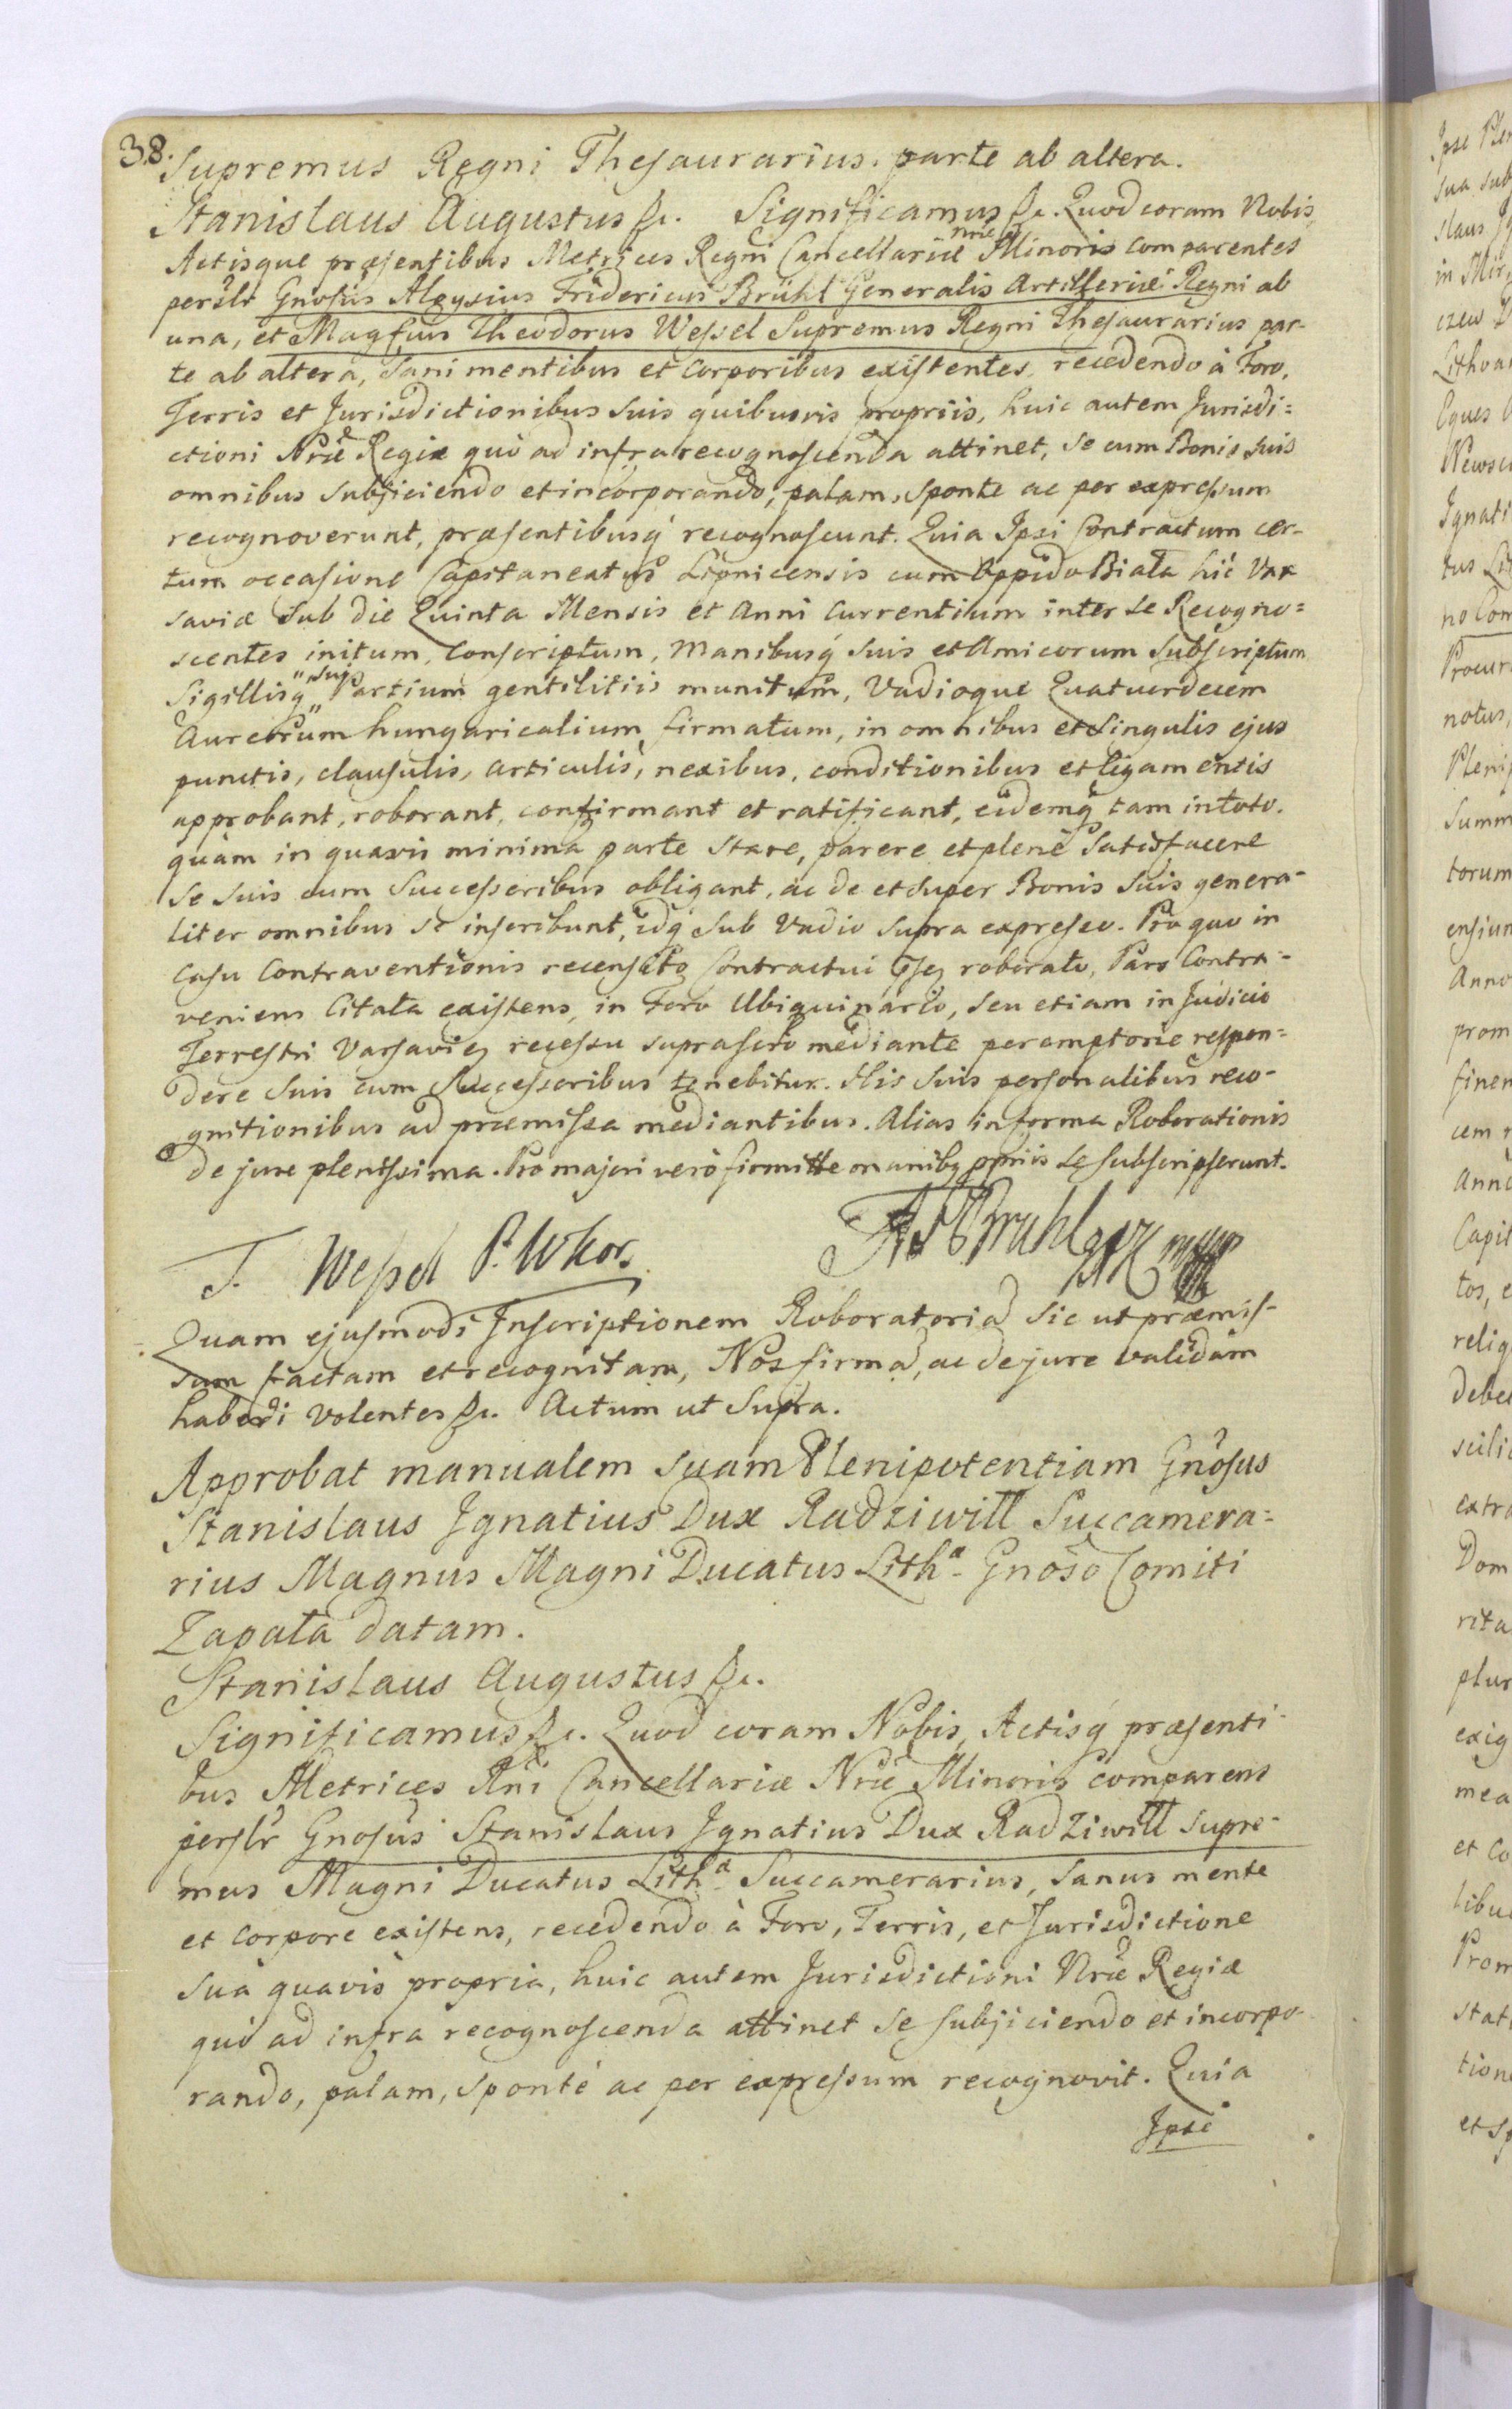 38.
Supremus Regni Thesaurarius. parte ab altera.
Stanislaus Augustus &c. Significamus &c. Quod coram Nobis,
Actisque præsentibus Metrices Regni Cancellariæ Nrãe Minoris comparentes
persãlr Gnõsus Aloysius Fridericus Brühl Generalis Artilleriæ Regni ab
una, et Magfcus Theodorus Wessel Supremus Regni Thesaurarius par-
te ab altera, Sani mentibus et Corporibus existentes, recedendo à Foro,
Terris et Jurisdictionibus suis quibusvis propriis, huic autem Jurisdi=
ctioni Nrãe Regiæ quò ad infra recognoscenda attinet, se cum Bonis suis
omnibus subjiciendo et incorporando, palam, sponte ac per expressum
recognoverunt, præsentibusq́ recognoscunt. Quia Ipsi Contractum cer-
tum occasione Capitaneatus Lipnicensis cum Oppido Biała hic Var
saviæ sub die Quinta Mensis et Anni currentium inter se Recogno=
scentes initum, Conscriptum, Manibusq́ suis et Amicorum Subscriptum
Sigillisq́ " suis " Partium gentilitiis munitum, Vadioque Quatuordecem
Aureorum hungaricalium firmatum, in omnibus et singulis ejus
punctis, clausulis, articulis, nexibus, conditionibus et ligamentis
approbant, roborant, confirmant et ratificant, eidemq́ tam in toto.
quàm in quavis minima parte stare, parere et plenè satisfacere
se suis cum Successoribus obligant, ac de et super Bonis suis genera-
liter omnibus se inscribunt, idq́ sub Vadio supra expresso. Pro quo in
casu Contraventionis recensito Contractui roborato, Pars Contra-
veniens Citata existens, in Foro Ubiquinario, seu etiam in Judicio
Terrestri Varsavieñ recessu suprascrõ mediante peremptorie respon=
dere suis cum Successoribus tenebitur. His suis personalibus reco-
gnitionibus ad præmissa mediantibus. Alias in forma Roborationis
de jure plenissima. Pro majori verò firmitte manibq ppriis se subscripserunt.
T. Wessel P. W Kor. A F Bruhl
Quam ejusmodi Inscriptionem Roboratoriã sic ut præmis-
sum factam et recognitam, Nos firmã, ac de jure validam
haberi volentes &c. Actum ut Supra.
Approbat manualem suam Plenipotentiam Gnõsus
Stanislaus Ignatius Dux Radziwiłł Succamera=
rius Magnus Magni Ducatus Lithæ Gnõso Comiti
Zapała datam.
Stanislaus Augustus &c.
Significamus &c. Quod coram Nobis, Actisq́ præsenti-
bus Metrices Rñi Cancellariæ Nrãe Minoris comparens
perslr Gnosus Stanislaus Ignatius Dux Radziwiłł Supre-
mus Magni Ducatus Lithæ Succamerarius, sanus mente
et corpore existens, recedendo à Foro, Terris, et Jurisdictione
suà quavis propria, huic autem Jurisdictioni Nrãe Regiæ
quò ad infra recognoscenda attinet se subjiciendo et incorpo-
rando, palam, sponte ac per expressum recognovit. Quia
Ipse